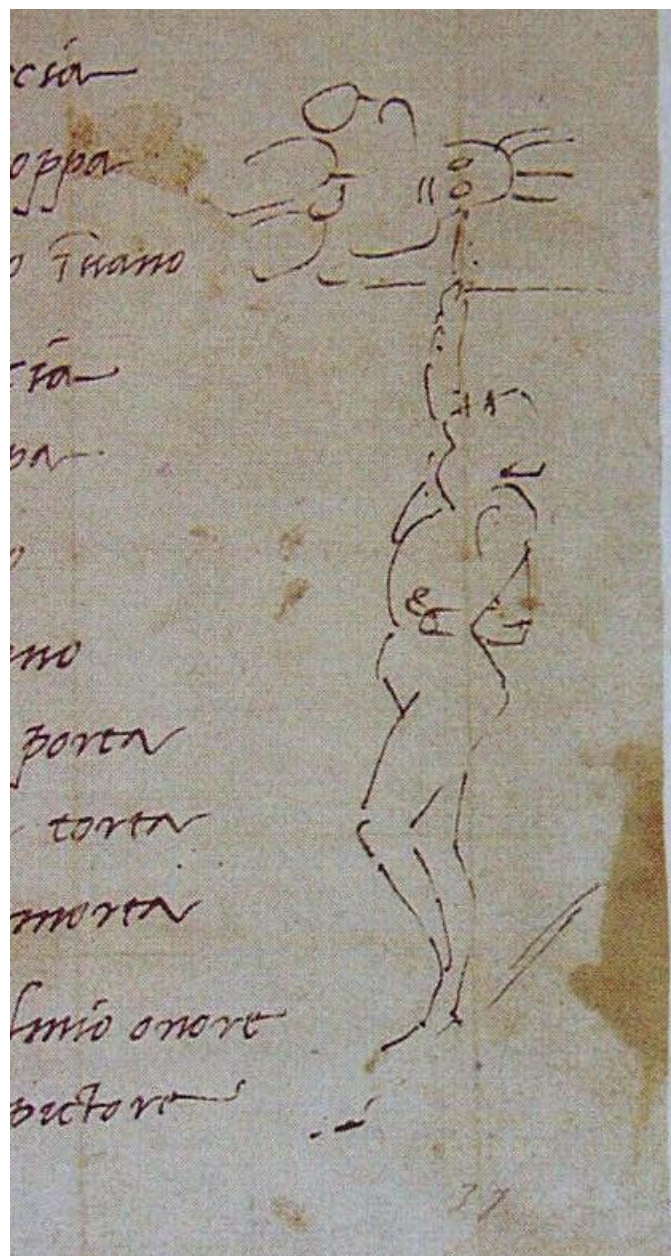 ccia
oppa
o ĩuano
ccia
pa
o
ano
porta
torta
morta
lmio onore
pictore
37